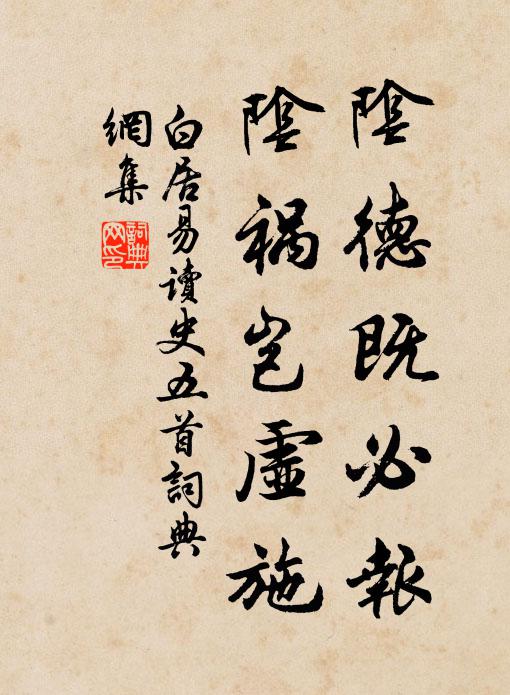 陰德既必報
陰禍豈虛施
白居易讀史五首詞典
網集
詞典
网印